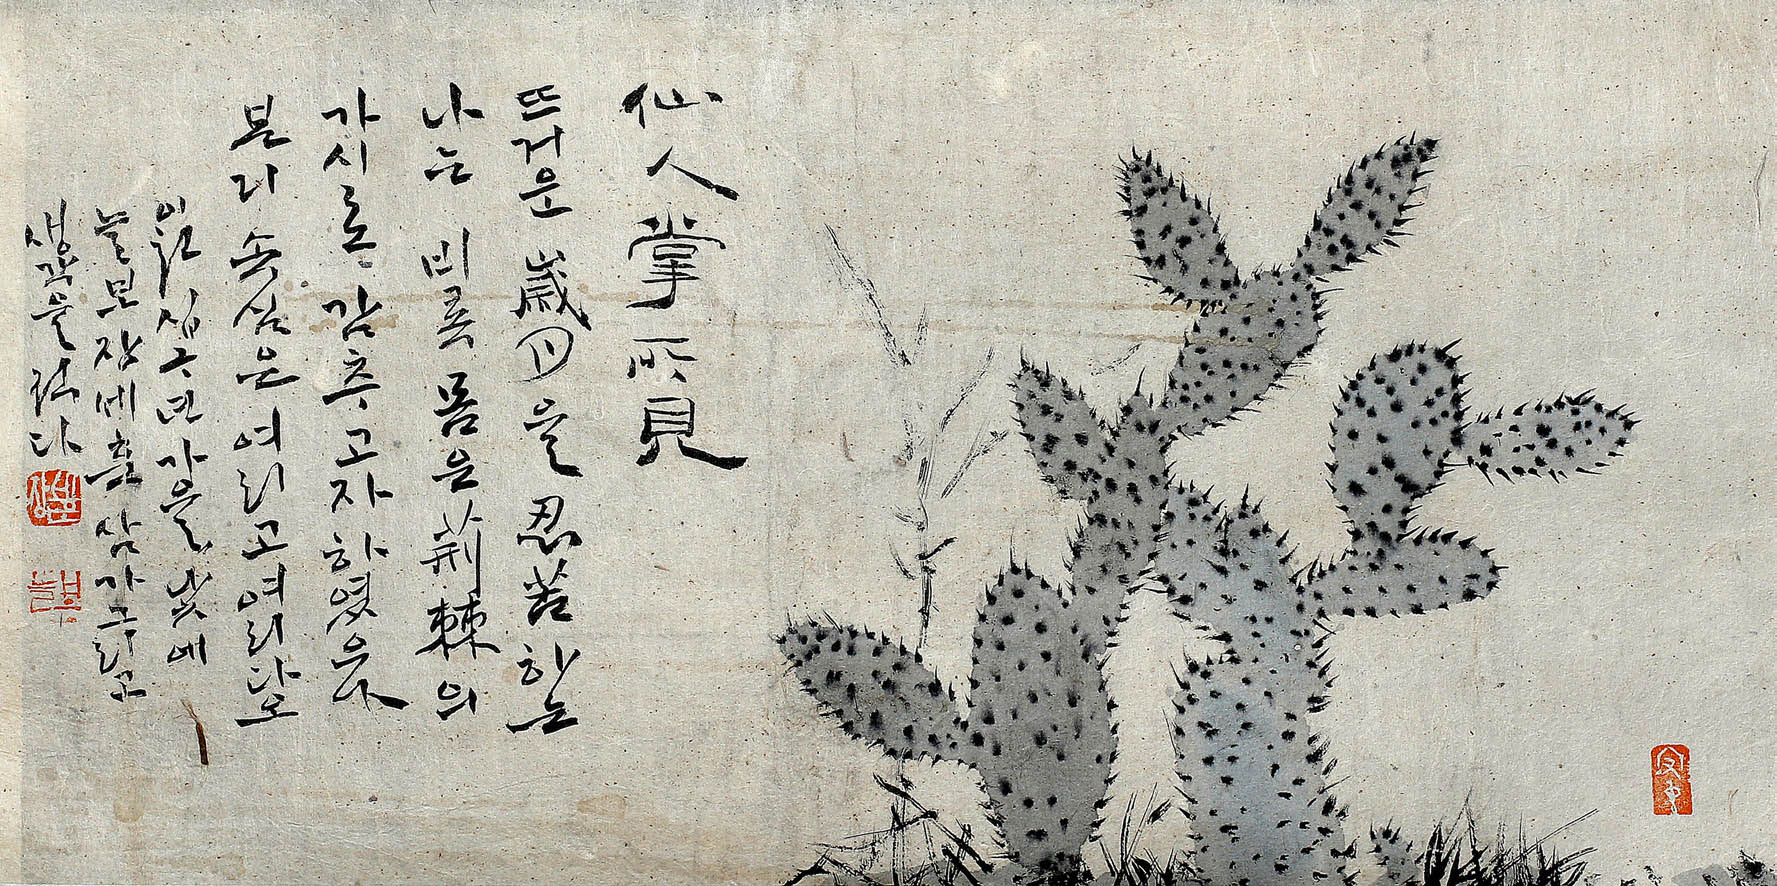 仙人掌所見
뜨거운 歲月을 忍苦하는
나는 비록 몸은 荊棘의
가시로 감추고자 하였으나
본디 속심은 여리고 여리다오
이천십구년 가을 낮에
늘보장 삼가 그리고
생각을 적다